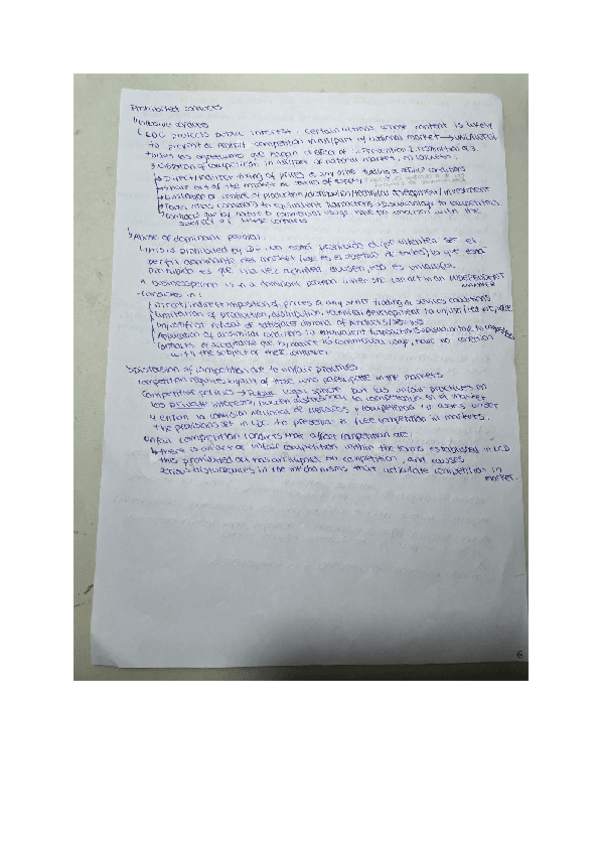 Prohibited conducts
Collusive conducts
LDC protects public interest. Certain actions whose content is likely
to prevent or restrict competition in all/part of national market → UNLAWFUL
todos los agreements que hagan el effect of: - Prevention 2. restriction or 3.
Distortion of competition in all/part of national market, on
Direct/indirect fixing of prices or any other trading or service conditions
Share out of the market or sources of supply
Limitation or control of production/distribution/technical development/investment
dissimilar conditions to equivalent transactions → Disadvantage to competitors
contracts que by nature or commercial usage have no connection with the
subject of these contracts
Abuse of dominant position
This is prohibited by no está prohibido el intentar ser el
perfil dominante del market (que es el objetivo de todos) lo que está
prohibido es que una vez actúes ESO es unlawful.
A businessperson is in a dominant position when she can act in an INDEPENDENT
MANNER
- Consists in:
Direct/indirect imposition of prices or any other trading or services conditions
Limitation of production, distribution, technical development to unjustified
Unjustified refusal to satisfy demand of products/services
Application of dissimilar conditions to equivalent transactions → disadvantage to competitors
Contracts or acceptance que by nature or commercial usage, have no connection
with the subject of these contracts.
Distortion of competition due to unfair practices
competition requires loyalty of those who participate in the markets
Competitive process → Private legal sphere but las unfair practices en
los private interests, pueden distorsionar la competencia en el market
y entran la comisión nacional de mercados y competencia to assess under
the provisions set in LDC to preserve a free competition in markets.
Unfair competition conducts that affect competition are:
there is an act of unfair competition within the terms established in LCD
this prohibited act has an impact on competition, and causes
serious disturbances in the mechanisms that articulate competition in
market.
6